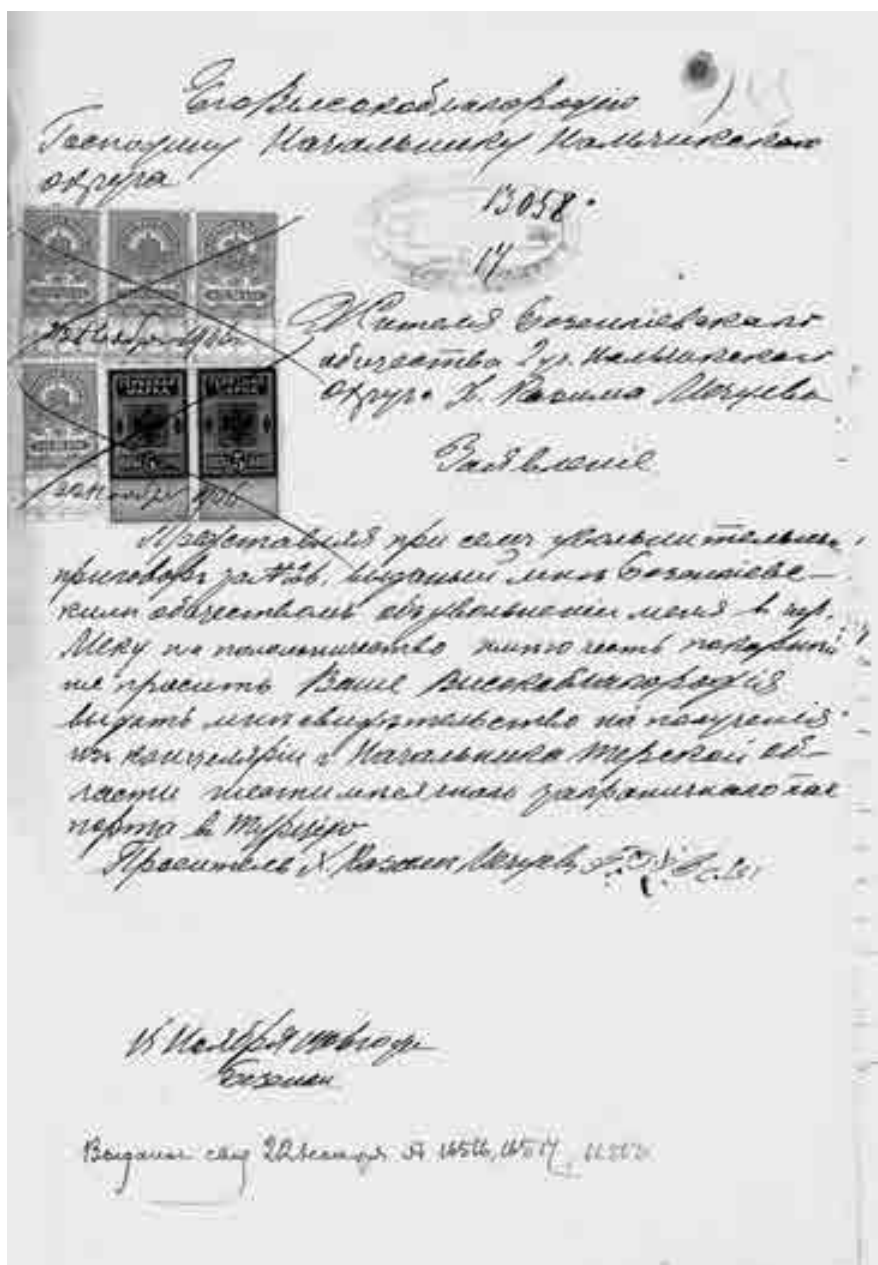 Его Высокоблагородію
Господину Начальнику Нальчикского
округа
13058.
17
Жителя Безенгіевскаго
общества 2 уч. Нальчикскаго
округа Х. Казима Мечуева
Заявленіе
Представляя при семъ увольнительный
приговоръ за №26, выданый мнѣ Безенгіевс-
кимъ обществомъ объ увольненіи меня в гор.
Меку на поломничество имѣю честь покорнѣй
ше просить Ваше Высокоблагородія
выдать мнѣ свидѣтельство на полученія
изъ канцеляріи г. Начальника Терской об-
ласти шестимѣсячнаго заграничнаго пас
порта в Турцію
Проситель Х. Казим Мечуев
15 Ноября года
Безенги
22 Ноября 1906
Выданы свид 22 № 16516, 16517